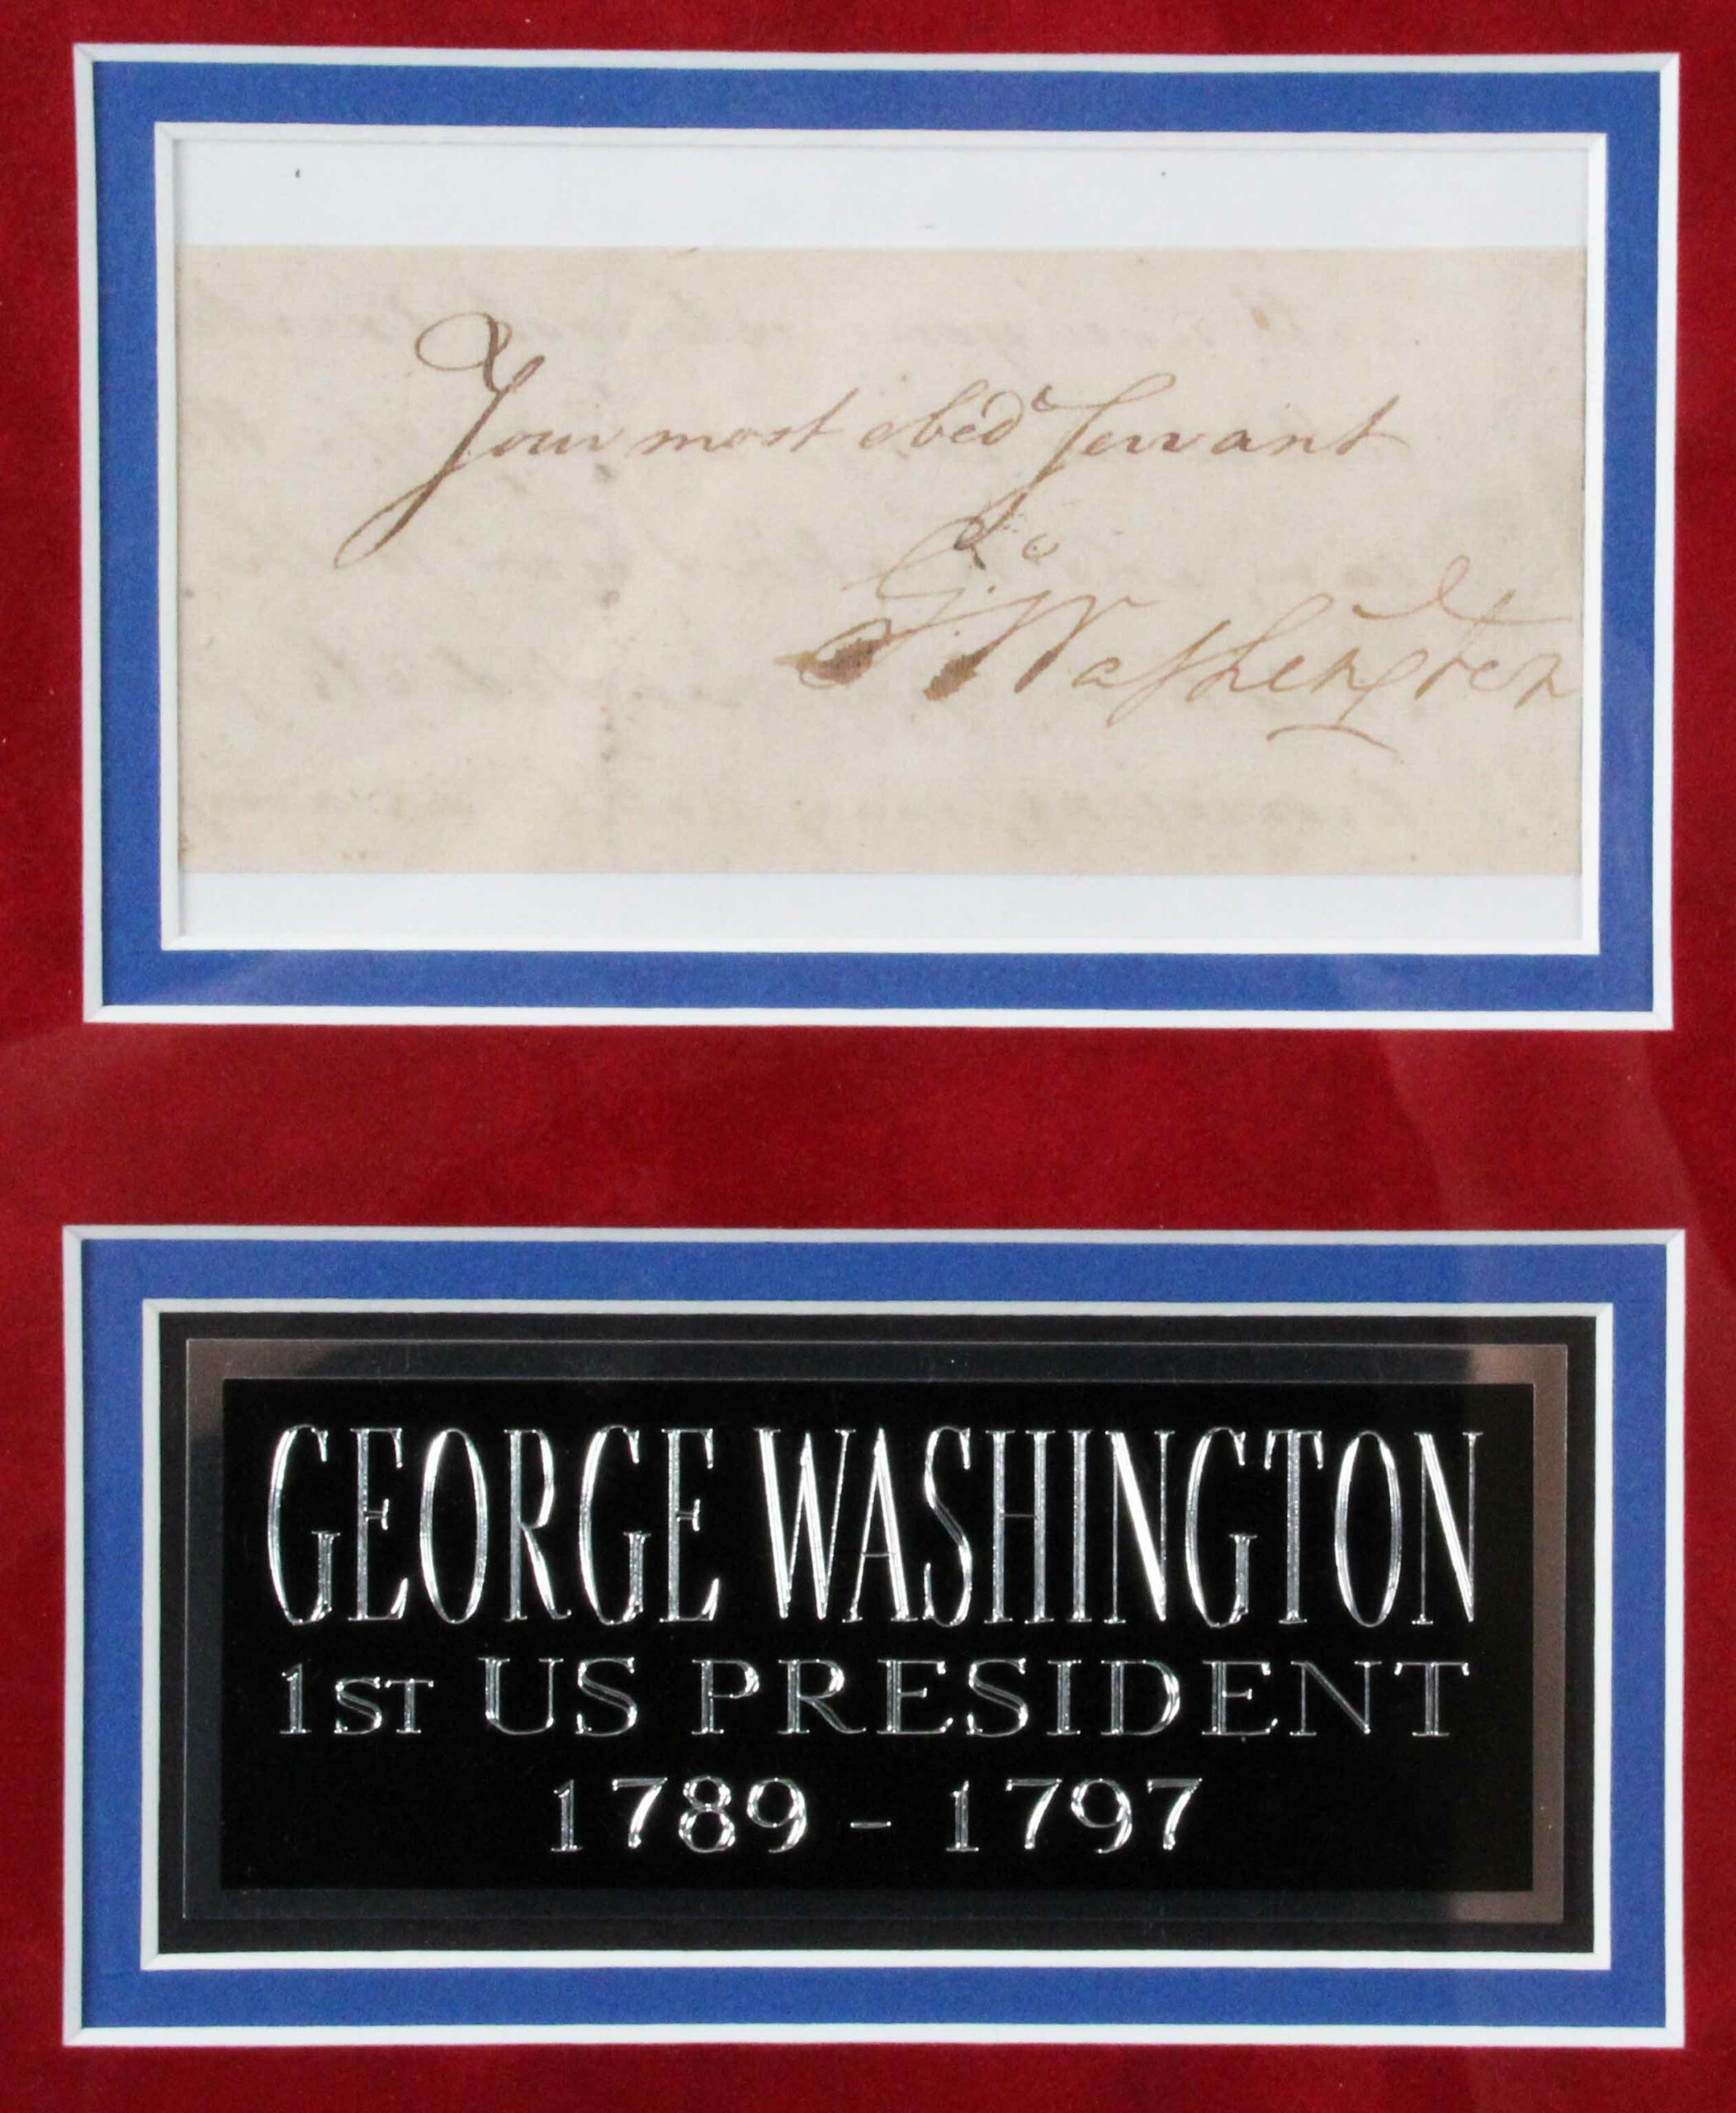 Your most obed.t Servant
Go Washington
GEORGE WASHINGTON
1ST US PRESIDENT
1789 - 1797